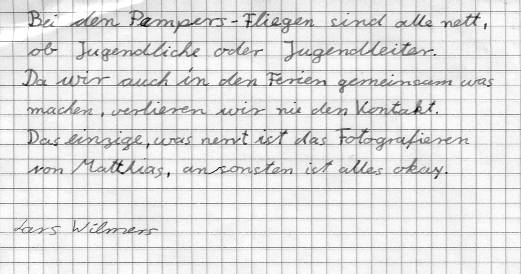 Bei den Pampers-Fliegen sind alle nett,
ob Jugendliche oder Jugendleiter.
Da wir auch in den Ferien gemeinsam was
machen, verlieren wir nie den Kontakt.
Das einzige, was nervt ist das Fotografieren
von Matthias, ansonsten ist alles okay.
Lars Wilmers